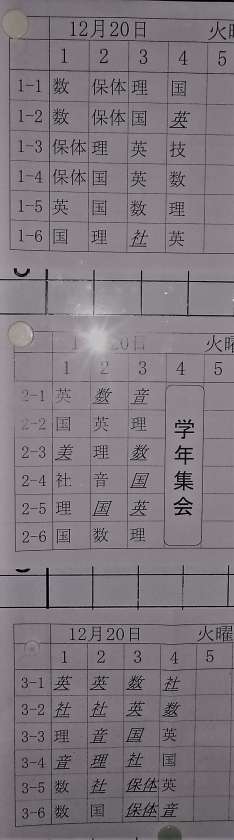 12月20日 火曜
1 2 3 4 5
1-1 数 保体 理 国
1-2 数 保体 国 英
1-3 保体 理 英 技
1-4 保体 国 英 数
1-5 英 国 数 理
1-6 国 理 社 英
20日 火曜
1 2 3 4 5
2-1 英 数 音
2-2 国 英 理
2-3 美 理 数
2-4 社 音 国
2-5 理 国 英
2-6 国 数 理
学年集会
12月20日 火曜
1 2 3 4 5
3-1 英 英 数 社
3-2 社 社 英 数
3-3 理 音 国 英
3-4 音 理 社 国
3-5 数 社 保体 英
3-6 数 国 保体 音